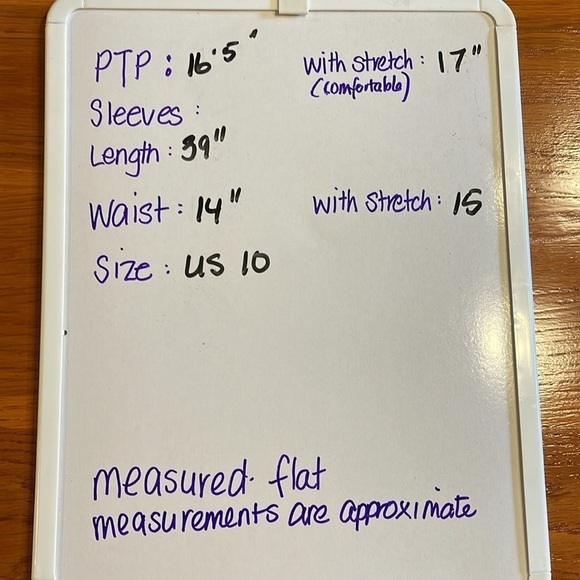 PTP : 16.5" with stretch : 17"
(comfortable)
Sleeves :
Length : 39"
Waist : 14" with stretch : 15
Size : US 10
measured. flat
measurements are approximate